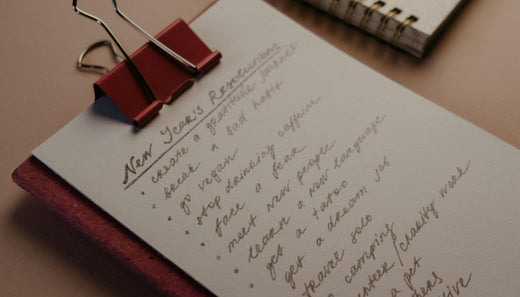 New Year's Resolutions
• create a gratitude journal
• break a bad habit
• go vegan
• stop drinking caffeine
• face a fear
• meet new people
• learn a new language
• get a tattoo
• get a dream job
travel solo
camping
/charity work
a pet